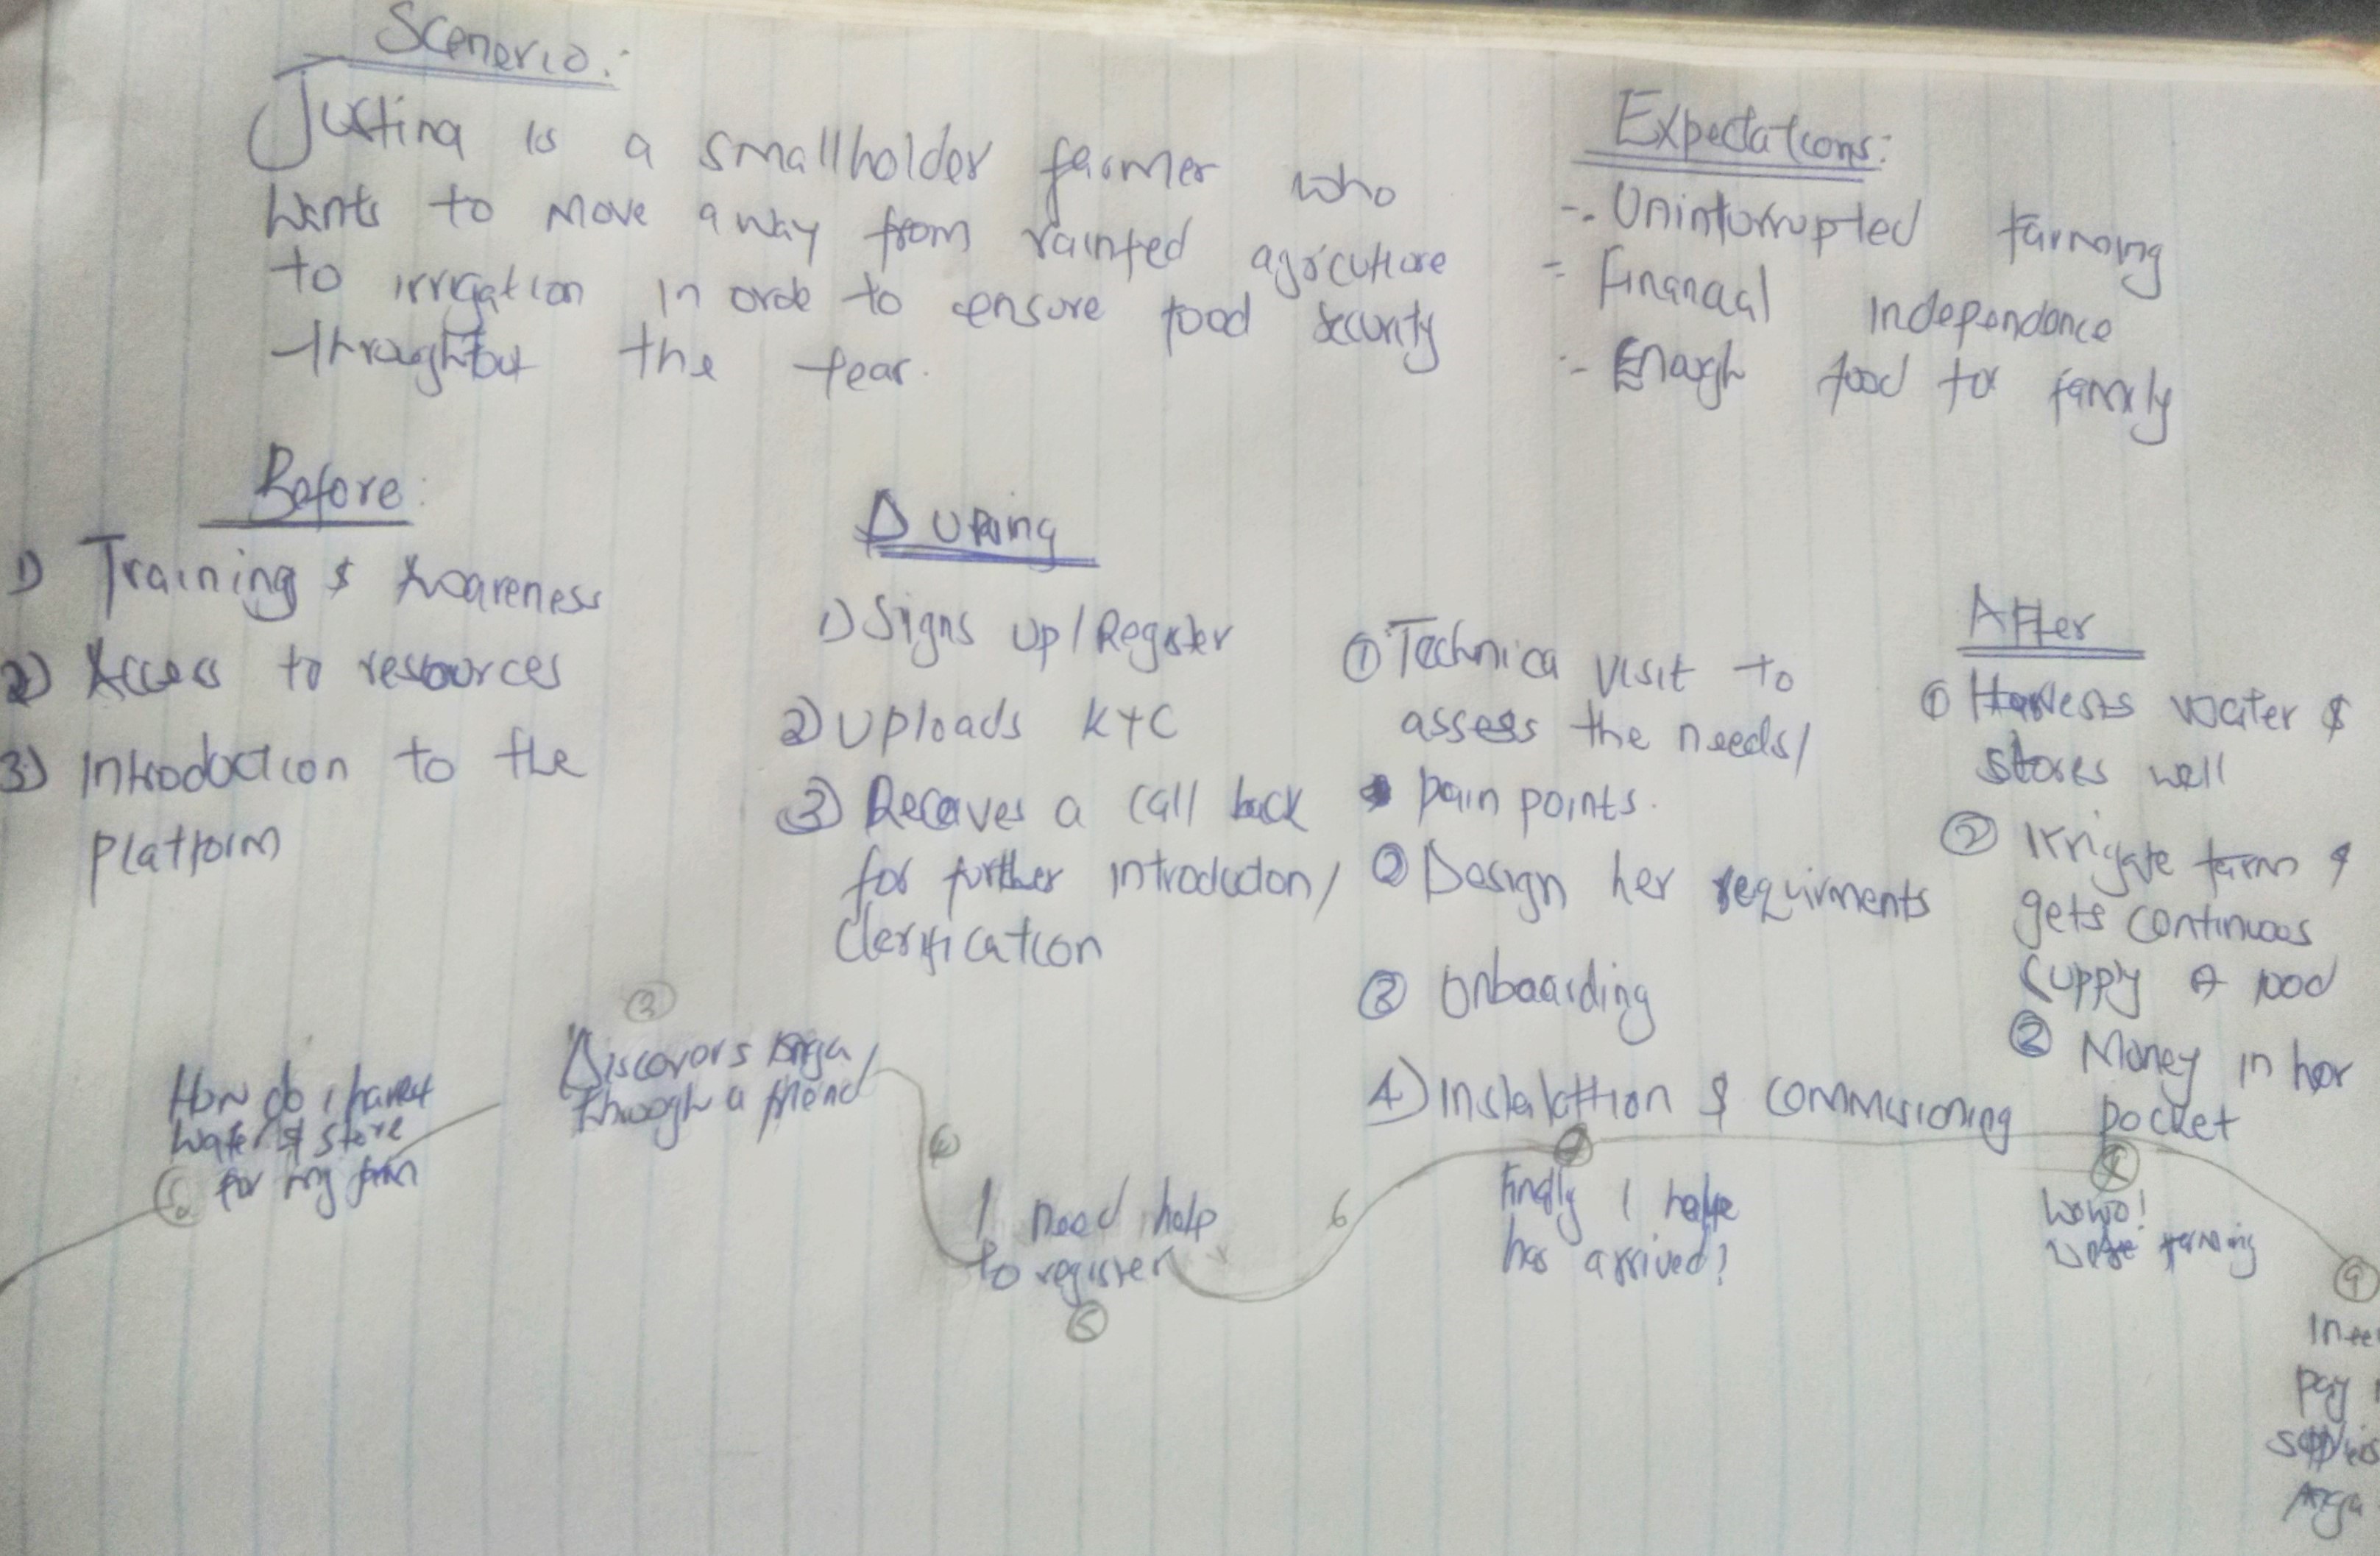 Scenerio:
Justina is a smallholder farmer who
wants to move away from rainfed agriculture
to irrigation in orde to ensure food security
throughtout the year.
Expectations:
- Uninturrupted farming
- Financial independance
- Enough food for family
Before:
1) Training & Awareness
2) Access to resources
3) Introduction to the
platform
During
1) Signs up/Register
2) Uploads KYC
3) Receives a call back
for further introduction/
Clerification
① Technica visit to
assess the needs/
pain points.
② Design her requirments
③ Onboarding
4) Installattion & commissioning
After
① Harvests water &
stores well
② Irrigate farm &
gets continuous
supply of food
② Money in her
pocket
How do i harvest
water & store
for my farm
③
Discovers
through a friend
I need help
to register
⑤
6
Finally I help
has arrived!
Wowo!
farming
⑨
pay
Arga